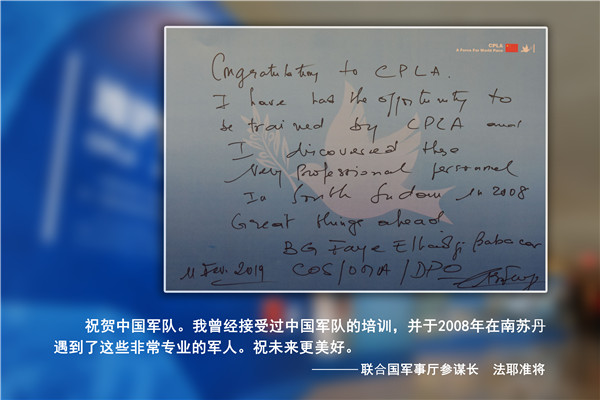 CPLA
A Force For World Peace
Congratulations to CPLA.
I have has the opportunity to
be trained by CPLA and
I discovered these
Very Professional personnel
In South Sudan in 2008
Great things ahead
BG Faye Elhadji Babacar
11 Fev. 2019 COS/OMA/DPO
祝贺中国军队。我曾经接受过中国军队的培训，并于2008年在南苏丹
遇到了这些非常专业的军人。祝未来更美好。
———联合国军事厅参谋长 法耶准将